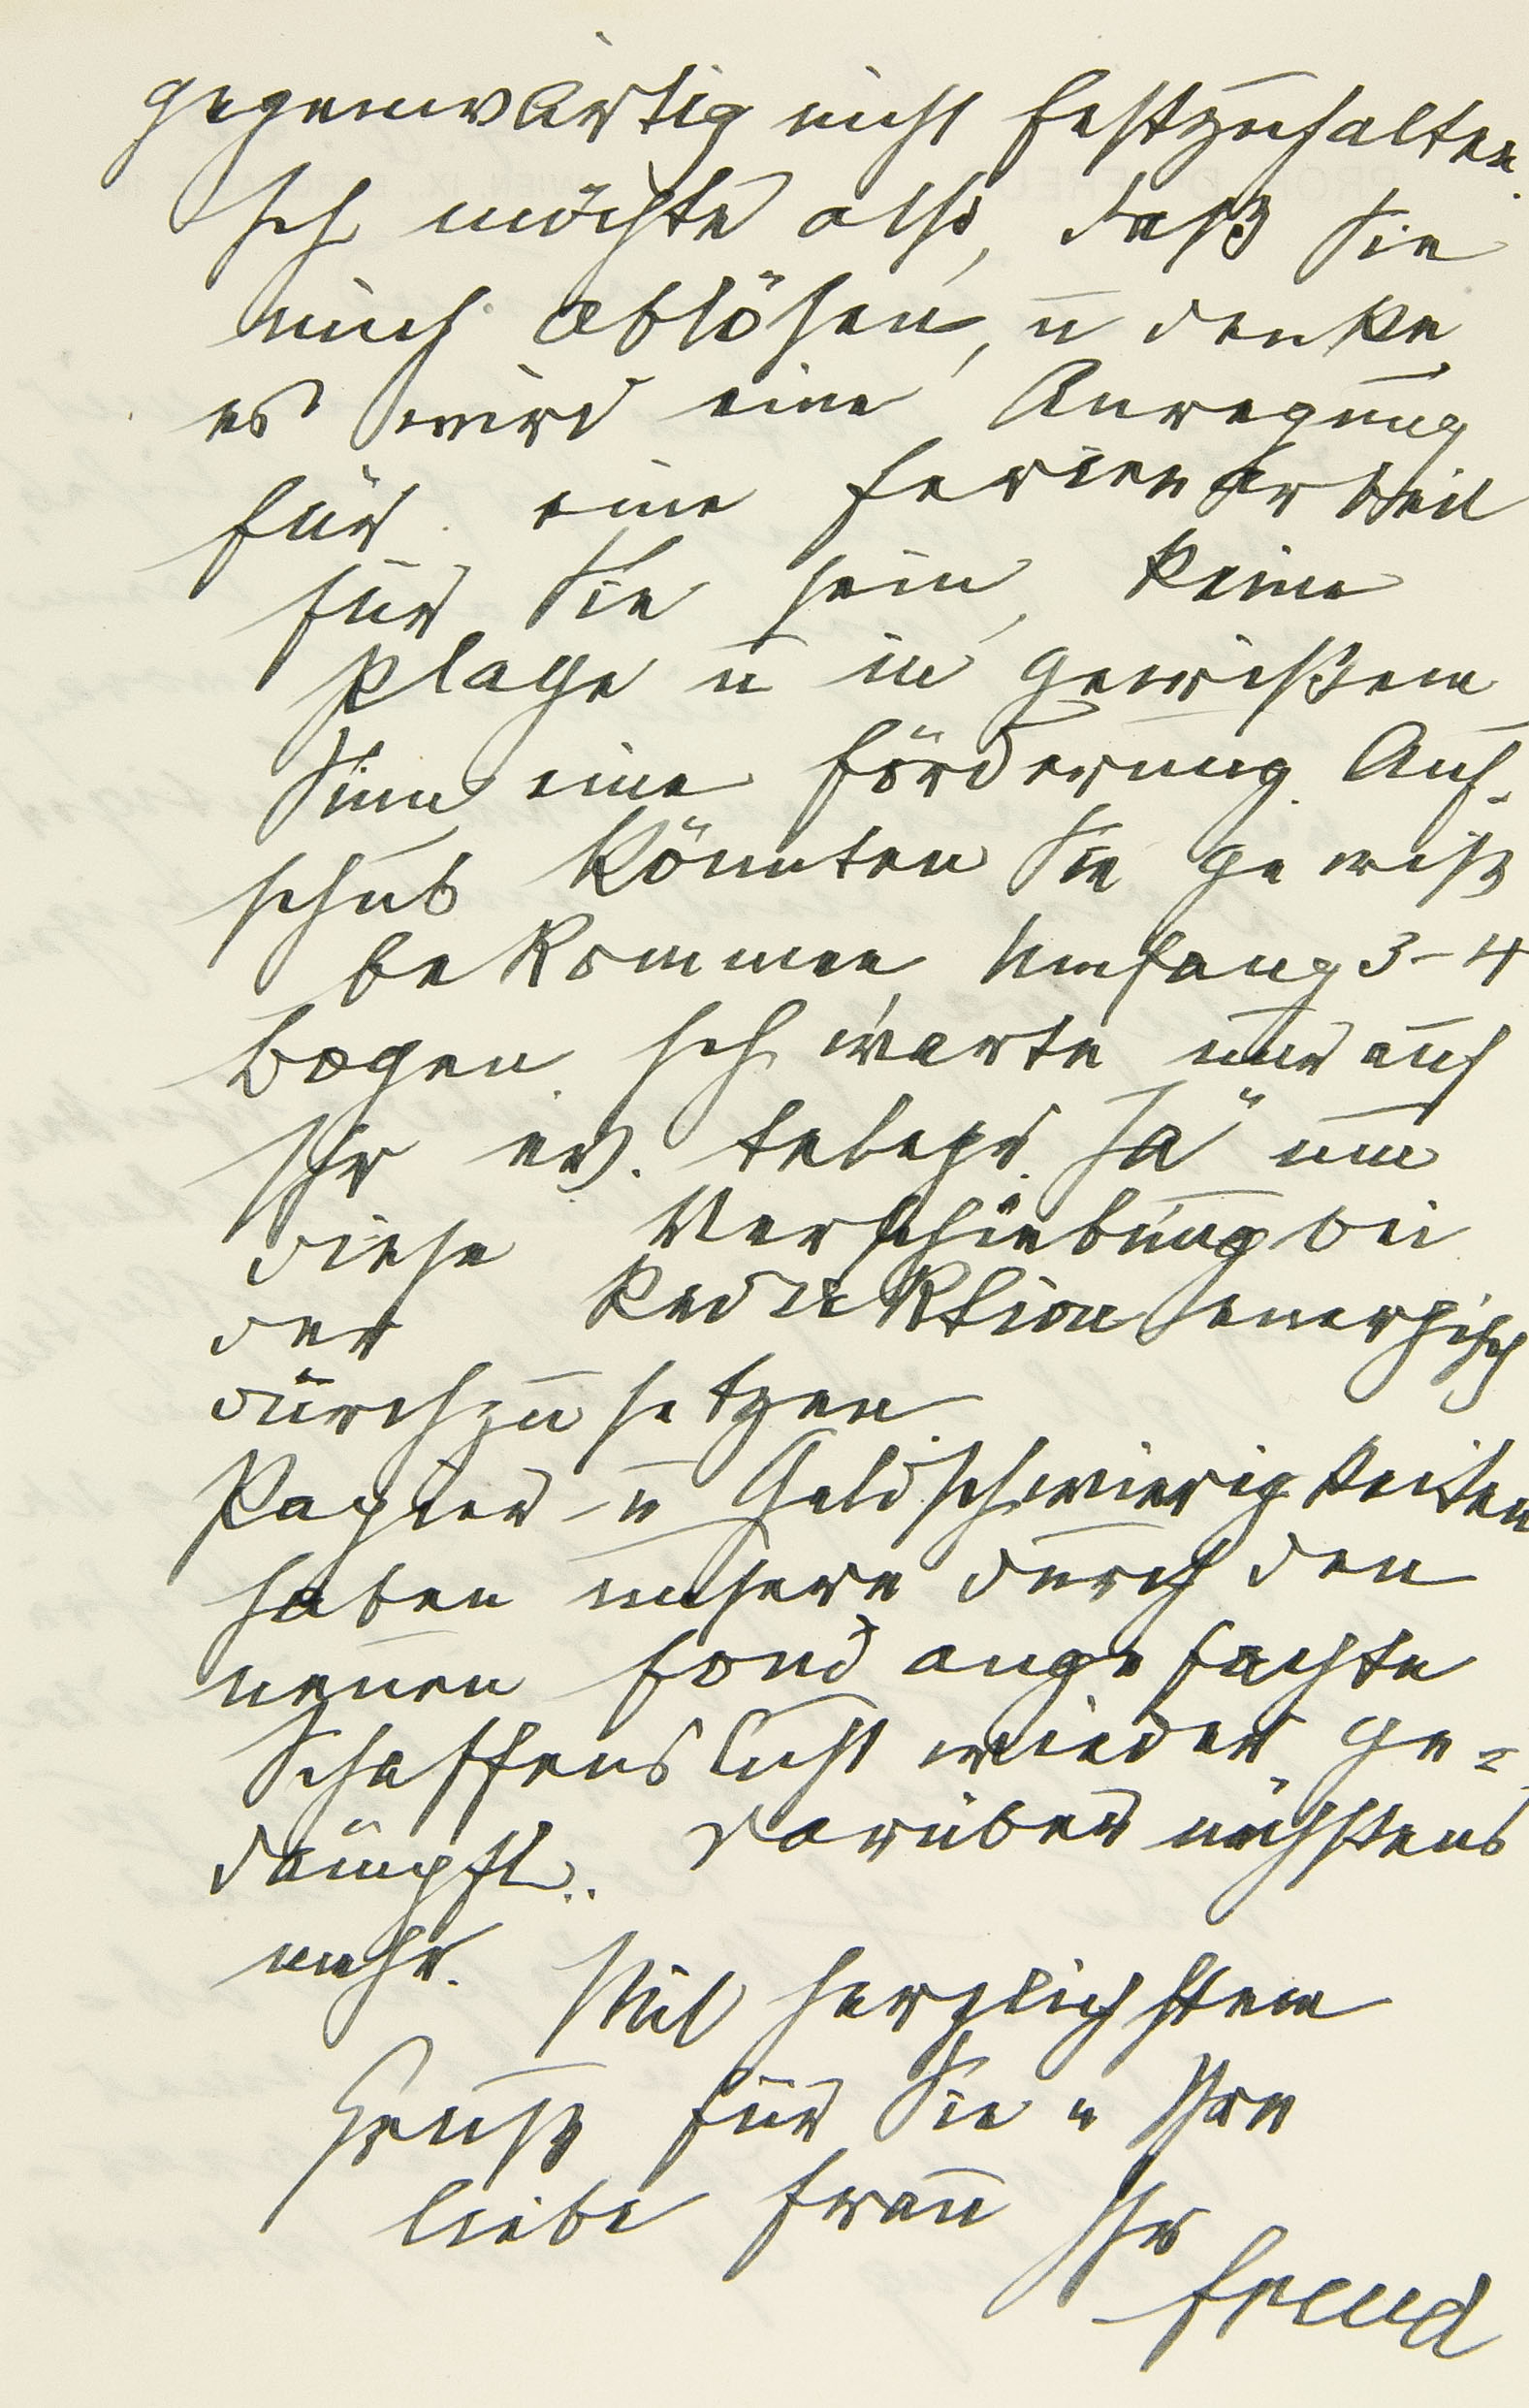 gegenwärtig nicht festzuhalten.
Ich möchte also, daß Sie
mich ablösen, u denke
es wird eine Anregung
für eine Ferienarbeit
für Sie sein, keine
Plage u in gewißem
Sinn eine Förderung. Auf-
schub könnten Sie gewiß
bekommen, Umfang 3-4
Bogen. Ich warte nur auf
Ihr ev. telegr. Ja" um
diese Verschiebung bei
der Redaktion energisch
durchzusetzen.
Papier- u Geldschwierigkeiten
haben unsere durch den
neuen Fond angefachte
Schaffenslust wieder ge=
dämpft. Darüber nächstens
mehr.
Mit herzlichstem
Gruß für Sie u Ihre
liebe Frau Ihr
Freud